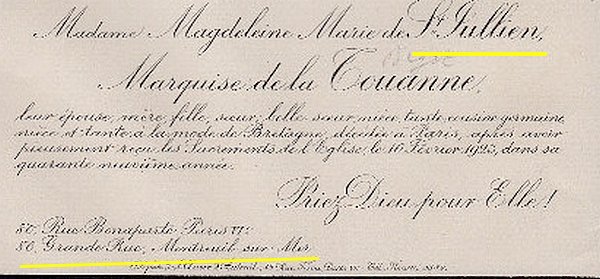 Madame Magdeleine Marie de St Jullien,
Marquise de la Touanne,
leur épouse, mère, fille, sœur, belle sœur, nièce, tante, cousine germaine,
nièce et tante à la mode de Bretagne, décédée à Paris, après avoir
pieusement reçu les Sacrements de l'Eglise, le 10 Février 1923, dans sa
quarante neuvième année.
Priez Dieu pour Elle!
Rue Bonaparte Paris VIe
80, Grande Rue, Montreuil-sur-Mer